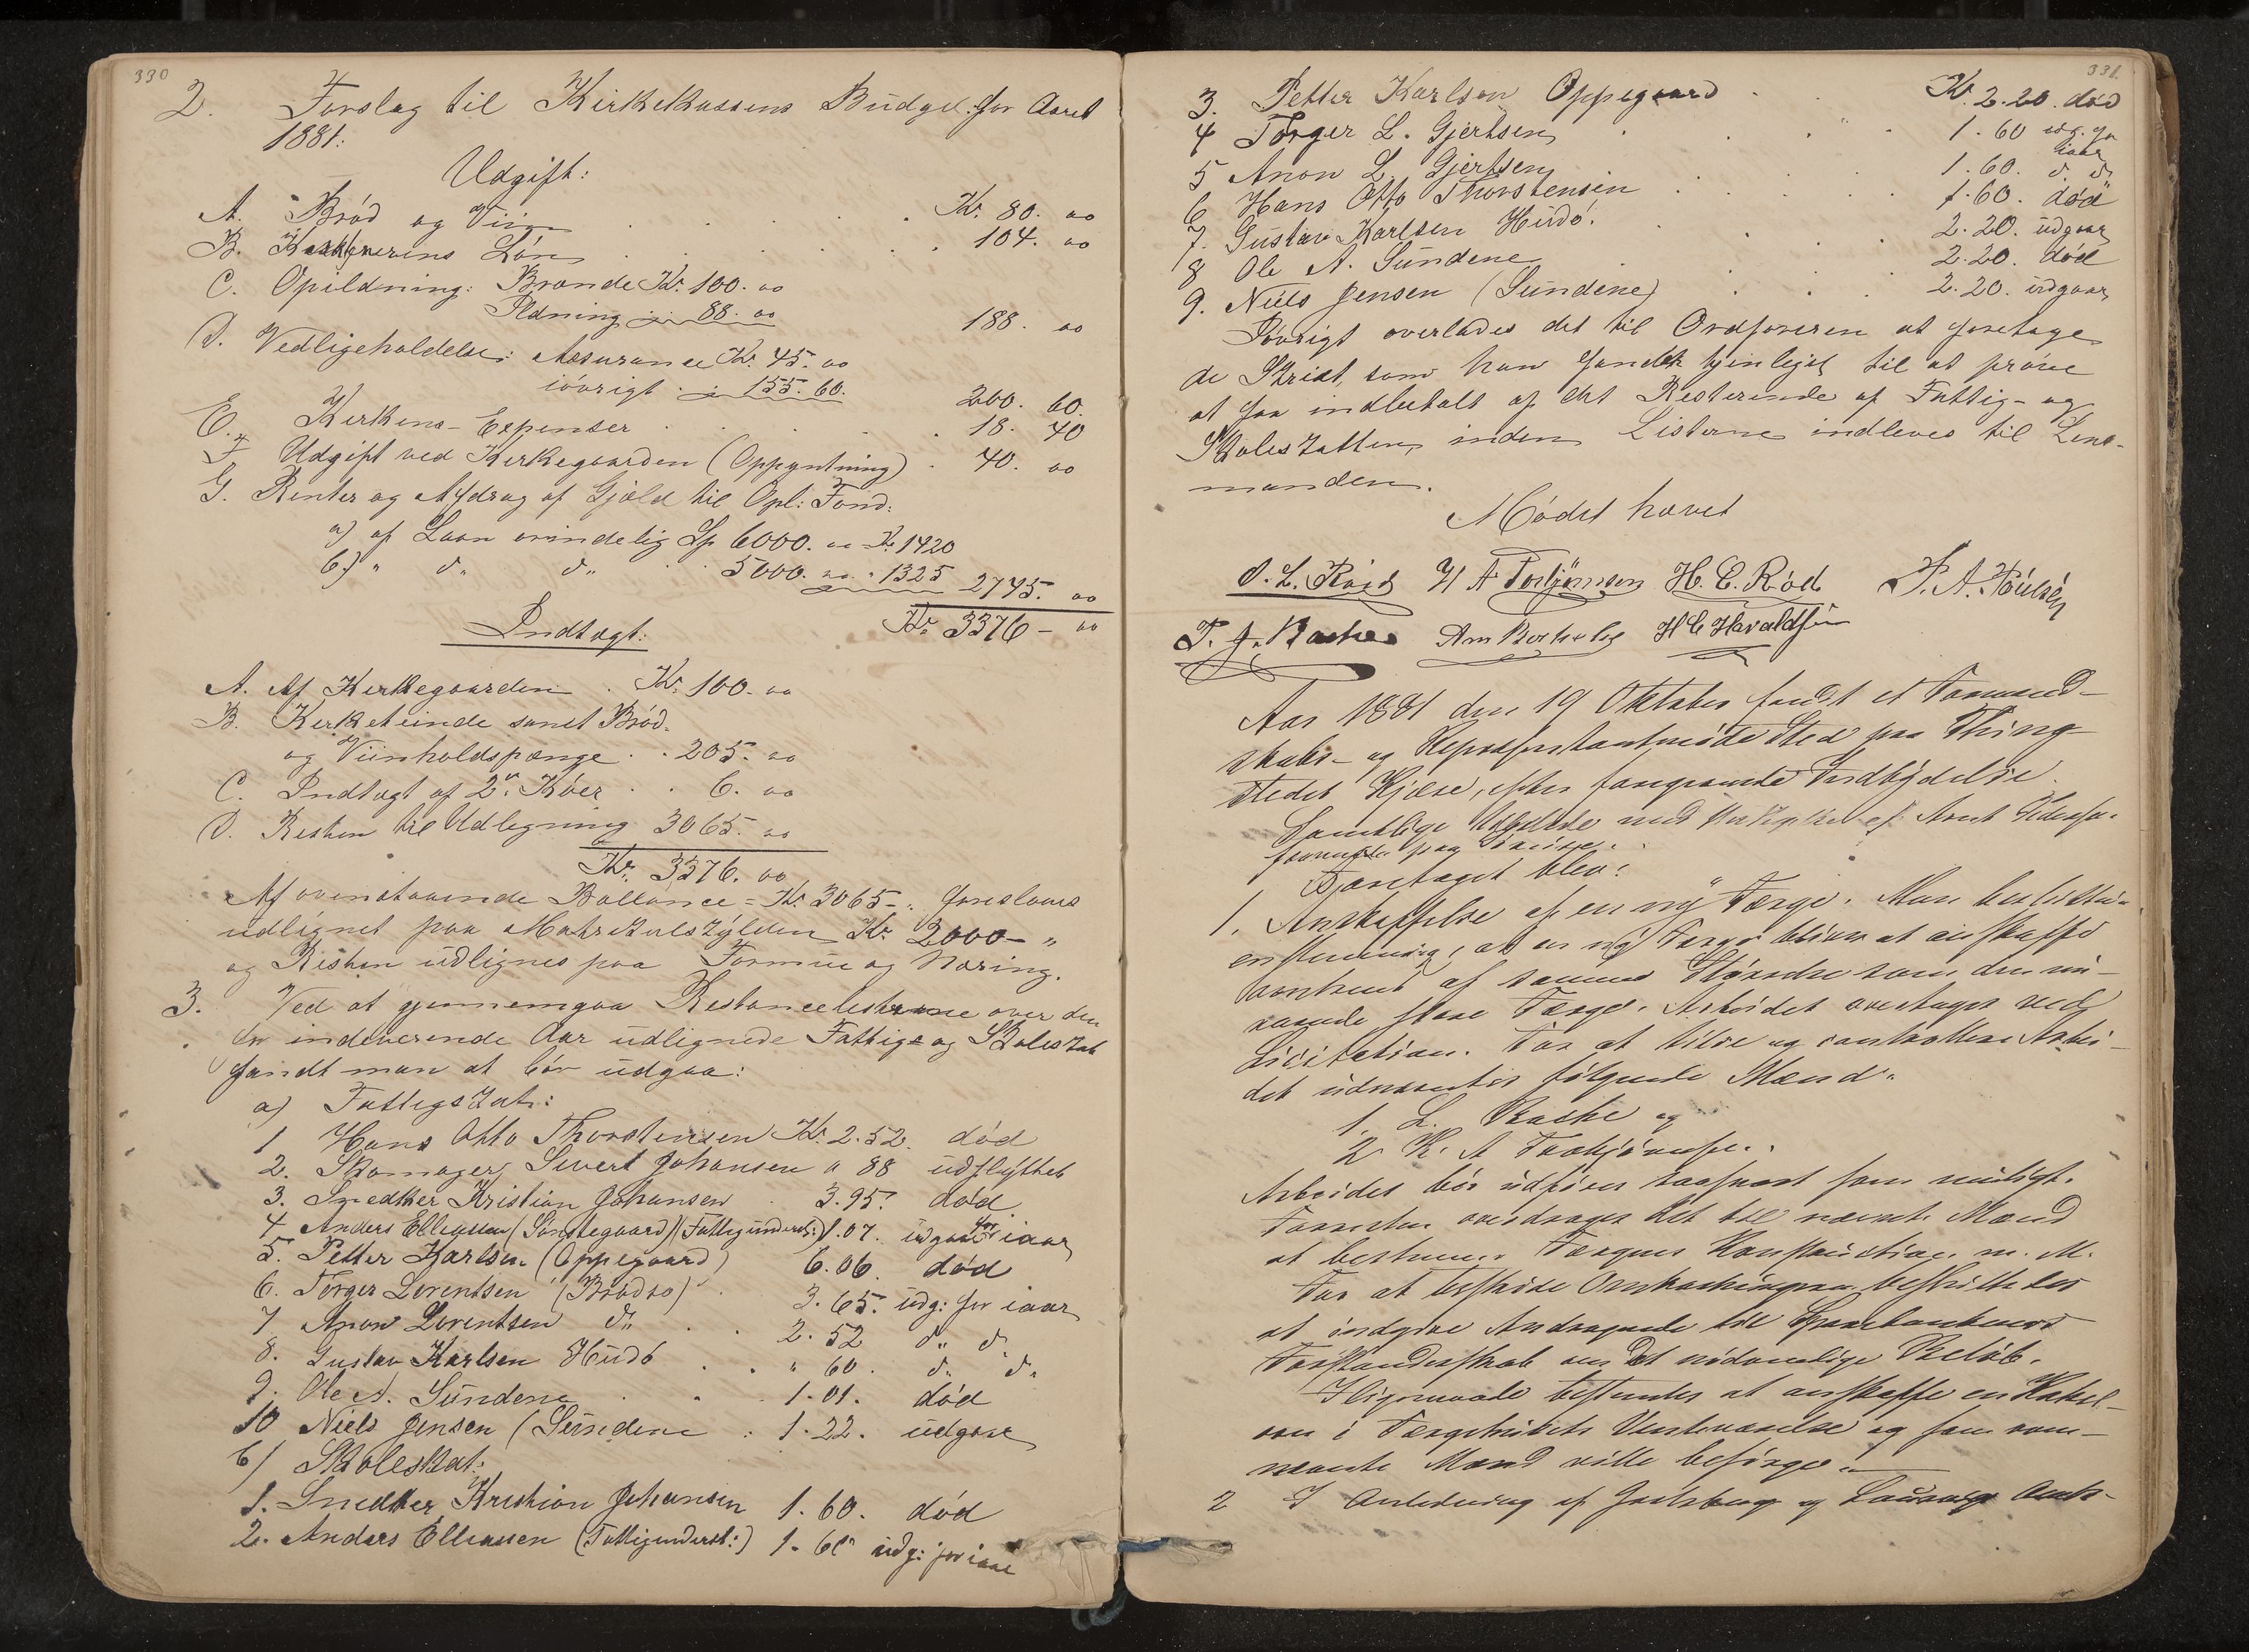 330
2. Forslag til Kirkekassens Budget for Aaret
1881:
Udgift:
A. Brød og Viin . . . . Kr. 80. 00
B. Løn . . . . . 104. 00
C. Opildning: Brænde Kr. 100. 00
Ildning " 88. 00 188. 00
D. Vedligeholdelse: Assurance Kr. 45. 00
iøvrigt " 155. 60. 200. 60.
E. Kirkens-Expenser . . . . 18. 40
F Udgift ved Kirkegaarden (Oppyntning) . 40. 00
G. Renter og Afdrag af Gjæld til Opl: Fond:
a) af Laan oprindelig Sp 6000. 00 Kr 1420
b) " do do . . 5000. 00 " 1325 2745. 00
Kr. 3376 - 00
Indtægt:
A. Af Kirkegaarden . Kr. 100. 00
B. Kirketiende samt Brød-
og Viinholdspænge . . 205. 00
C. Indtægt af 2de Køer . . 6. 00
D. Resten til Udlegning 3065. 00
Kr. 3376. 00
Af ovenstaaende Ballance = Kr. 3065 - " foreslaaes
udlignet paa Matrikulskylden Kr. 2000 - "
og Resten udlignes paa Formue og Næring.
3. Ved at gjennemgaa Restancelisterne over den
for indeværende Aar udlignede Fattig- og Skoleskat
fandt man at bør udgaa:
a) Fattigskat:
1 Hans Otto Thorstensen Kr. 2.52. død
2. Skomager Sivert Johansen " 88 udflyttet
3. Snedker Kristian Johansen . 3.95. død
4 Anders Elleusen (Sønstegaard) (Fattigunderst:) 1.07. udgaar for iaar
5. Petter Karlsen (Oppegaard) 6.06. død
6. Torger Lorentsen (Brødsø) . 3.65. udg: for iaar
7 Anon Lorentsen do . . 2.52 do do
8. Gustav Karlsen Hudø . . " 60. do do
9. Ole A. Sundene . . 1.01. død
10 Niels Jensen (Sundene . 1.22. udgaar
b) Skoleskat:
1. Snedker Kristian Johansen 1.60. død
2. Anders Elleusen (Fattigunderst:) 1.60 udg: for iaar
331.
3. Petter Karlsen Oppegaard . . Kr. 2.20. død
4 Torger L. Gjertsen . . . 1.60 udg. for iaar
5 Anon L. Gjertsen . . . 1.60. do do
6 Hans Otto Thorstensen . . . 1.60. død
7. Gustav Karlsen Hudø. . . . 2.20. udgaar
8 Ole A. Sundene . . . 2.20. død
9. Niels Jensen (Sundene) . . . 2.20. udgaar
Iøvrigt overlades det til Ordføreren at foretage
de Skridt, som han fandt tjenligst til at prøve
at faa indbetalt af det Resterende af Fattig- og
Skoleskatten, inden Listerne indleves til Lens-
manden.
Mødet hævet
H. C. Rød
H C Haraldsen
Aar 1881 den 19 Oktober fandt et Formand-
skabs- og Repræsentantmøde Sted paa Thing
stedet Kjære, efter foregaaende Indbydelse.
Samtlige mødte med Undtagelse af Arnt
Foretaget blev:
1. Anskaffelse af en ny Færge. Man besluttede
enstemmig, at en ny Færge bliver at anskaffe
omtrent af samme Størrelse som den nu-
værende store Færge. Arbeidet overtages ved
Licitation. For at tilse og controllere Arbei-
det udnævntes følgende Mænd.
1. L. Bache og
2. K. A Torbjørnsen.
Arbeidet bør udføres saasnart som muligt.
Forresten overdrages det til nævnte Mænd
at bestemme Færgens Konstruktion m. M.
For at bestride Omkostningerne besluttedes
at indgive Andragende til Sparebankens
Forstanderskab om det nødvendige Beløb.
Ligesaa bestemtes at anskaffe en Kakel-
ovn i Færgestedets Venteværelse og som oven-
nævnte Mænd ville besørge.
2 I Anledning af Jarlsberg og Laurvigs Amts-